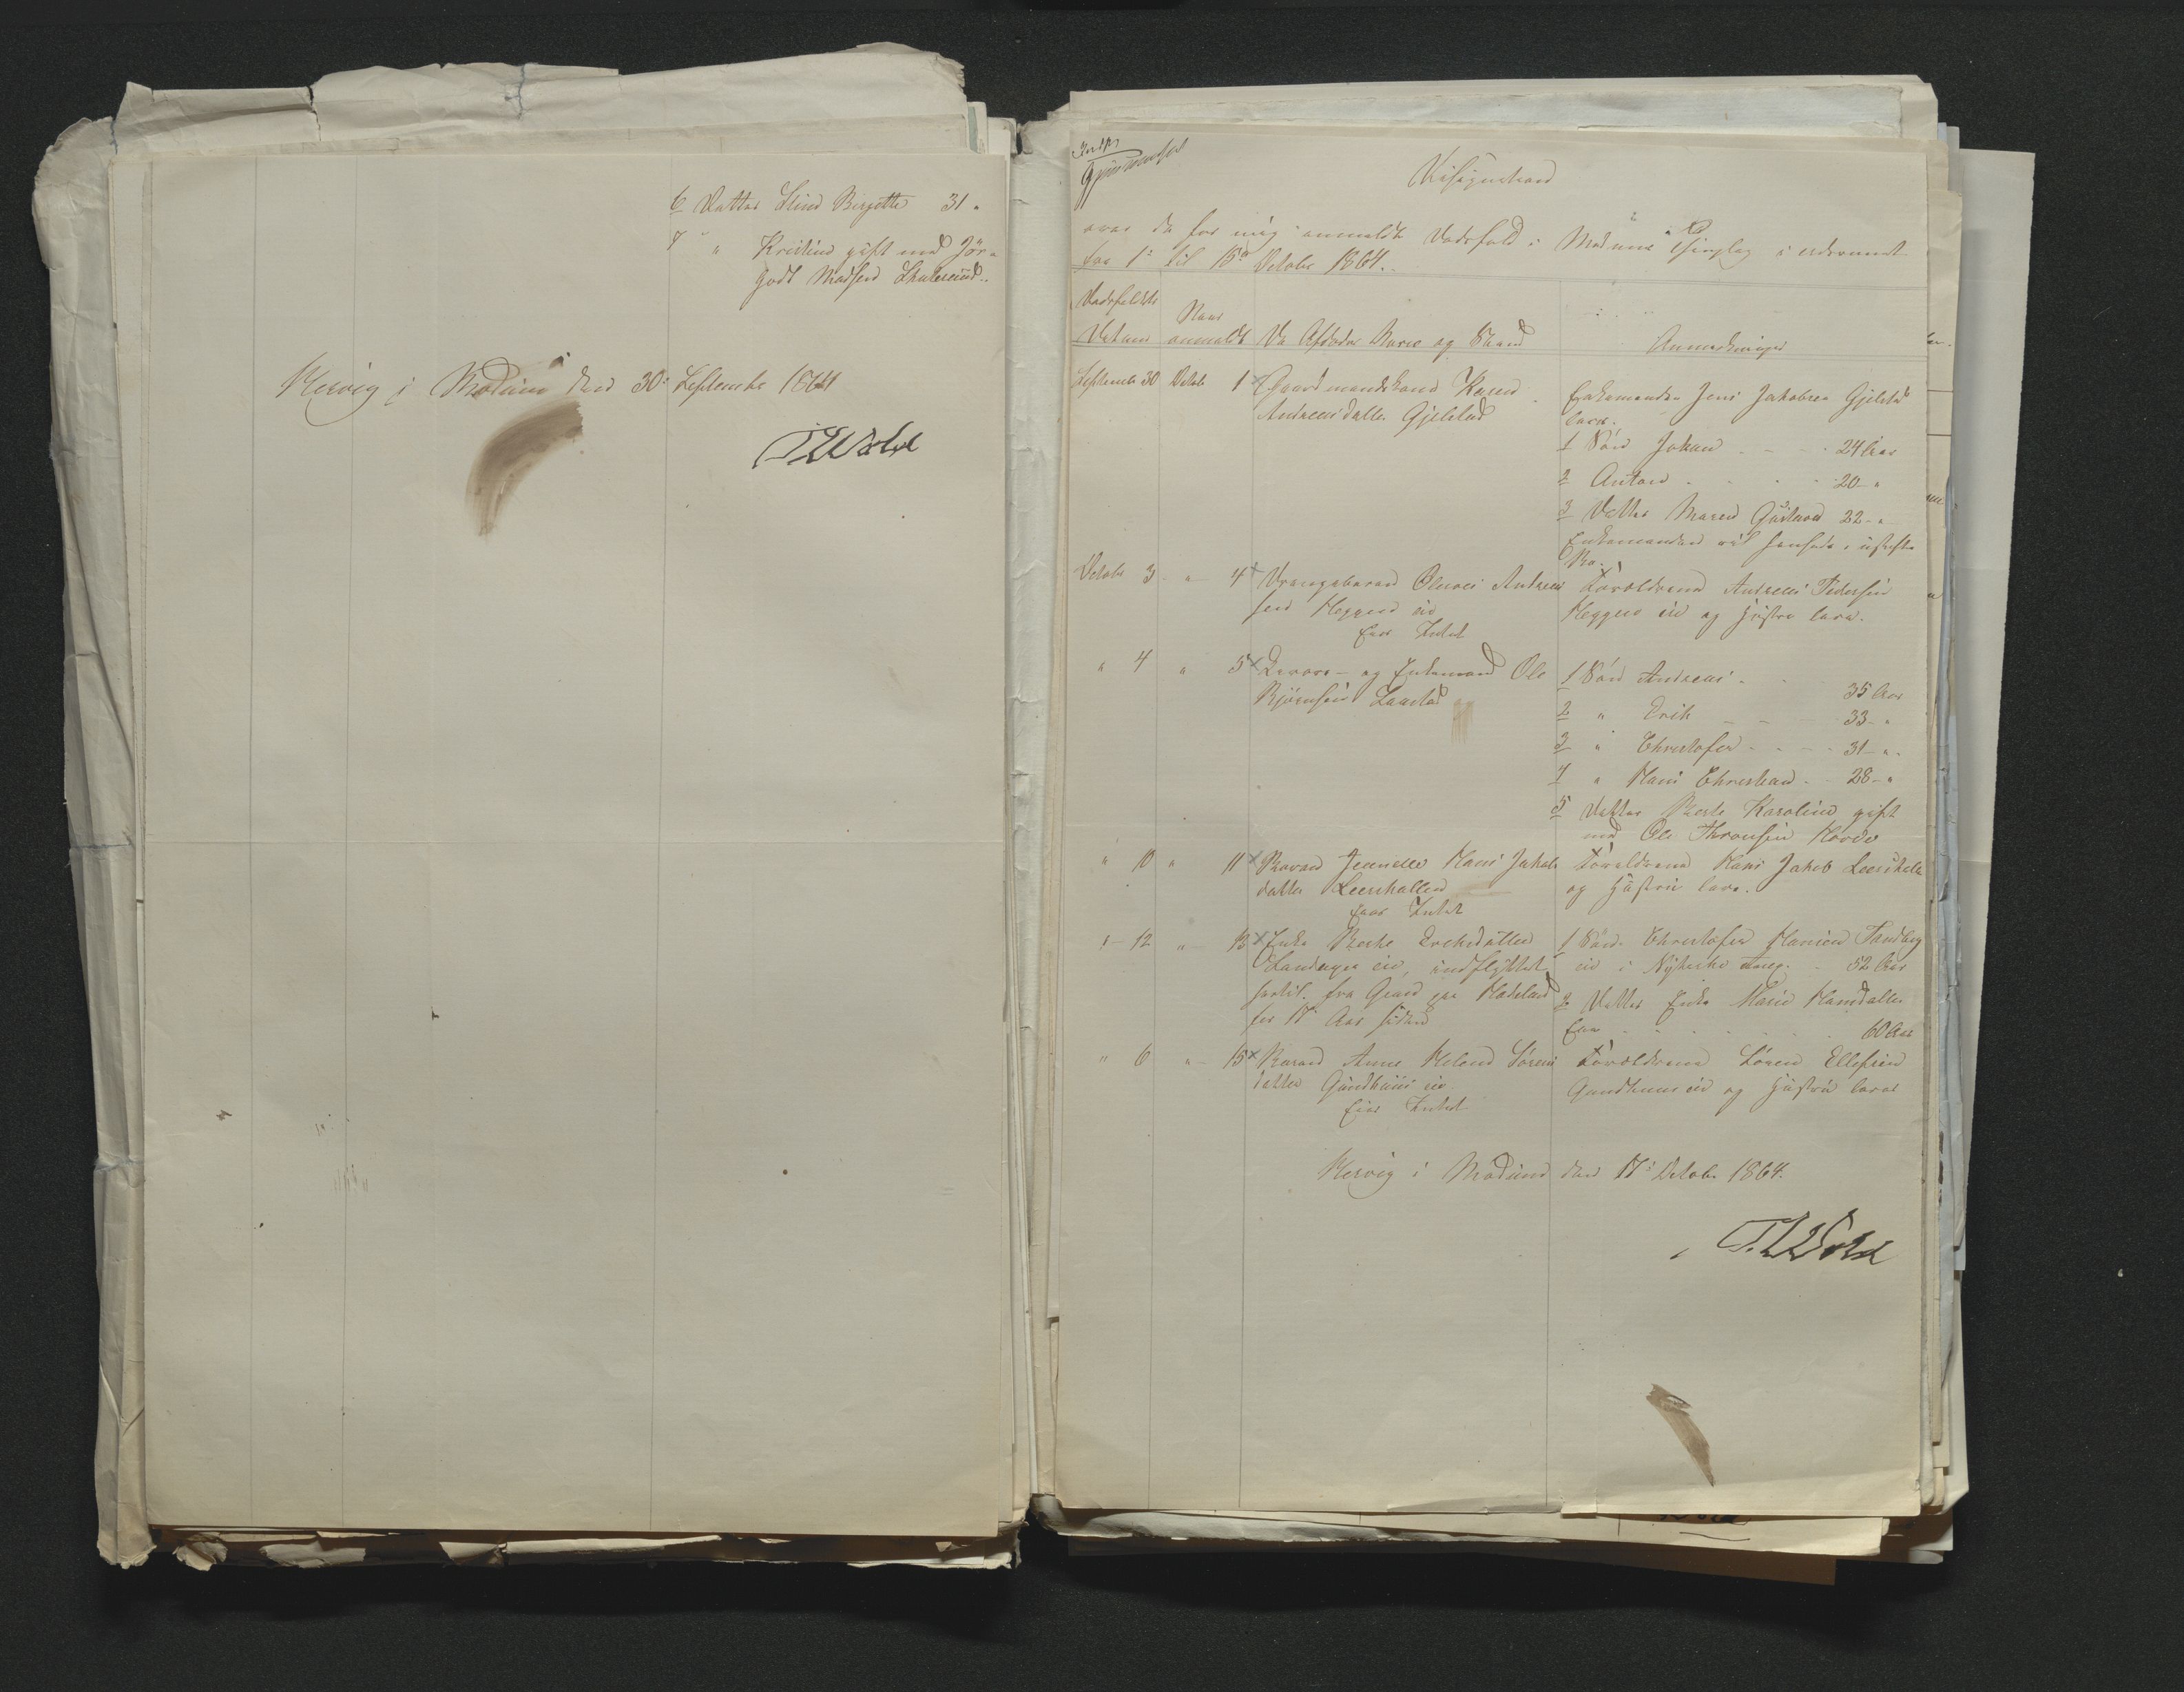 6 Datter Stine Bergitte 31 "
7 " " Kristine gift med Jör=
godt Madsen
Kervig i Modum den 30: September 1864
T. Wold
Indf
Gjennemseet
Designation
over de for mig anmeldte Dødsfald i Modums Thinglag i
fra 1: til 15: October 1864.
Dødsfaldets Datum
Naar anmeldt
De Afdødes Navne og Stand
Anmærkninger
September 30 Octob. 1 Gaardmandskone Karen
Andreasdatter Gjelstad
Enkemanden Jens Jakobsen Gjelstad
lever.
1 Søn Johan - - - 24 Aar
2 Anton - - - 20 - "
3 Datter Maren Gustava 22 - "
Enkemanden vil hensidde i uskiftet
Bo.
October 3 " 4 Drengebarn Oluves Andreas=
sen Heggen eie
Eier Intet
Forældrene Andreas Pedersen
Heggen eie og Hustru lever.
" 4 " 5 og Enkemand Ole
Bjørnsen
1 Søn Andreas - - 35 Aar
2 " Erik - - - 33 - "
3 " Christofer - - - 31 - "
4 " Hans Christian - - 28 - "
5 Datter Berte Karoline gift
med Ole Thronsen Hovde
" 10 " 11 Barn Jennette Hans Jakobs
datter Leerskallen
Eier Intet
Forældrene Hans Jakob Leerskallen
og Hustru lever.
" 12 " 13 Enke Berthe Eriksdatter
eie, indflyttet
fra Gran paa Hadeland
for 17 Aar siden
1 Søn Christofer Hansen Sandberg
eie i Nykirke Anneg. - 52 Aar
2 Datter Enke Marie Hansdatter
60 Aar
" 6 " 15 Barn Anne Helene Sørens
datter Gundhuus eie
Eier Intet
Forældrene Søren Ellefsen
Gundhuus eie og Hustru lever
Kervig i Modum den 17: October 1864.
T. Wold